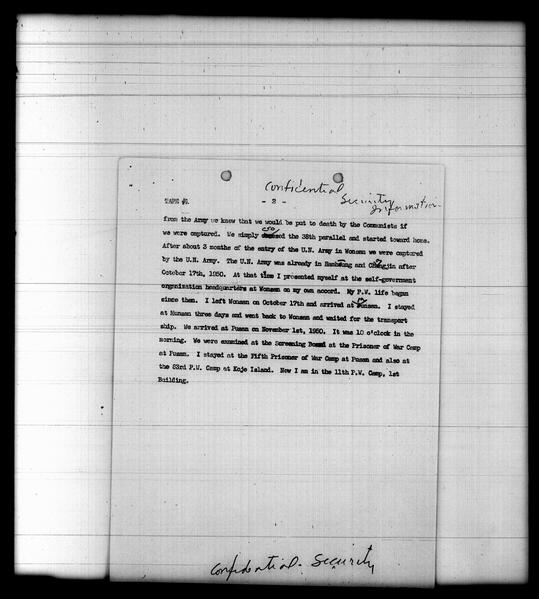 Confidential
Security
Information
TAPE #1
- 2 -
from the Army we knew that we would be put to death by the Communists if
we were captured. We simply crossed the 38th parallel and started toward home.
After about 3 months of the entry of the U.N. Army in Wonsan we were captured
by the U.N. Army. The U.N. Army was already in and after
October 17th, 1950. At that time I presented myself at the self-government
organization headquarters at Wonsan on my own accord. My P.W. life began
since then. I left Wonsan on October 17th and arrived at I stayed
at Hunsan three days and went back to Wonsan and waited for the transport
ship. We arrived at Pusan on November 1st, 1950. It was 10 o'clock in the
morning. We were examined at the Screening Board at the Prisoner of War Camp
at Pusan. I stayed at the Fifth Prisoner of War Camp at Pusan and also at
the 83rd P.W. Camp at Koje Island. Now I am in the 11th P.W. Camp, 1st
Building.
Confidential - Security